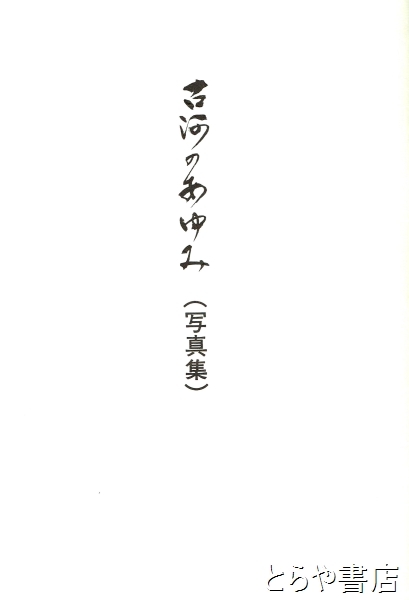 古河のあゆみ
（写真集）
とらや書店